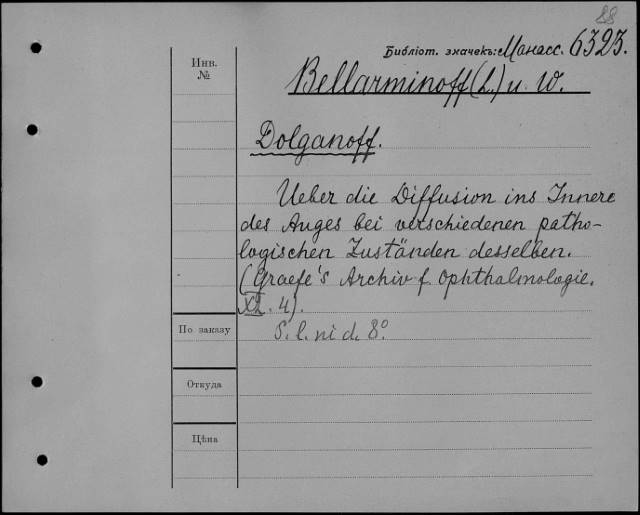 88
Библіот. значекъ: Манасс. 6323.
Инв.
№
Bellarminoff (L.) u. W.
Dolganoff.
Ueber die Diffusion ins Innere
des Auges bei verschiedenen patho-
logischen Zuständen desselben.
(Graefe's Archiv f. Ophthalmologie.
XL. 4).
По заказу
S. l. ni d. 8°
Откуда
Цѣна